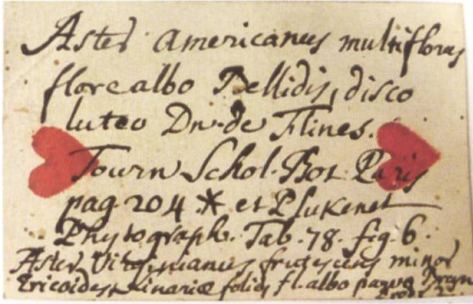 Aster americanus multiflorus
flore albo Bellidis, disco
luteo Dn. de Flines.
Tourn Schol. Bot Paris
pag 204 * et Plukenet
Phytograph. Tab. 78. fig. 6.
Aster Virginianus frutescens minor
Ericoides linariæ folijs fl. albo parvo